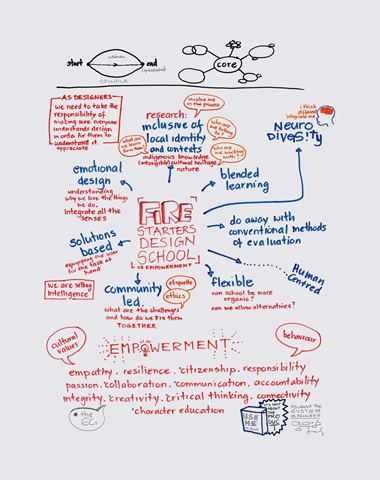 start
end
SPINDLE
core
AS DESIGNERS
we need to take the
responsibility of
making sure everyone
understands design
in order for them to
understand it.
appreciate
research:
inclusive of
local identity
and contexts
indigenous knowledge
(intangible) cultural heritage
nature
involve me
in the process
who are
we talking
to?
who are
we working
with??
what can
we learn
from them?
i think
different
integrate me
NEURO
DiVERSiTy
emotional
design
understanding
why we love the things
we do.
integrate all the
senses
blended
learning
FIRE
STARTERS
DESIGN
SCHOOL
OF EMPOWERMENT
do away with
conventional methods
of evaluation
solutions
based
equipping the user
for the task at
hand
Human
Centred
we are selling
intelligence
community
led.
what are the challenges
and how do we fix them
TOGETHER
etiquette
ethics
flexible
can school be more
organic?
can we allow alternatives?
cultural
values
EMPOWERMENT
behaviour
empathy . resilience . citizenship . responsibility
passion . collaboration . communication . accountability
integrity . creativity . critical thinking . connectivity
character education
the
6Cs
USE
ME
IT'S NOT
ABOUT
THE
PRO
DUCT
ITS ABOUT THE
SYSTEM